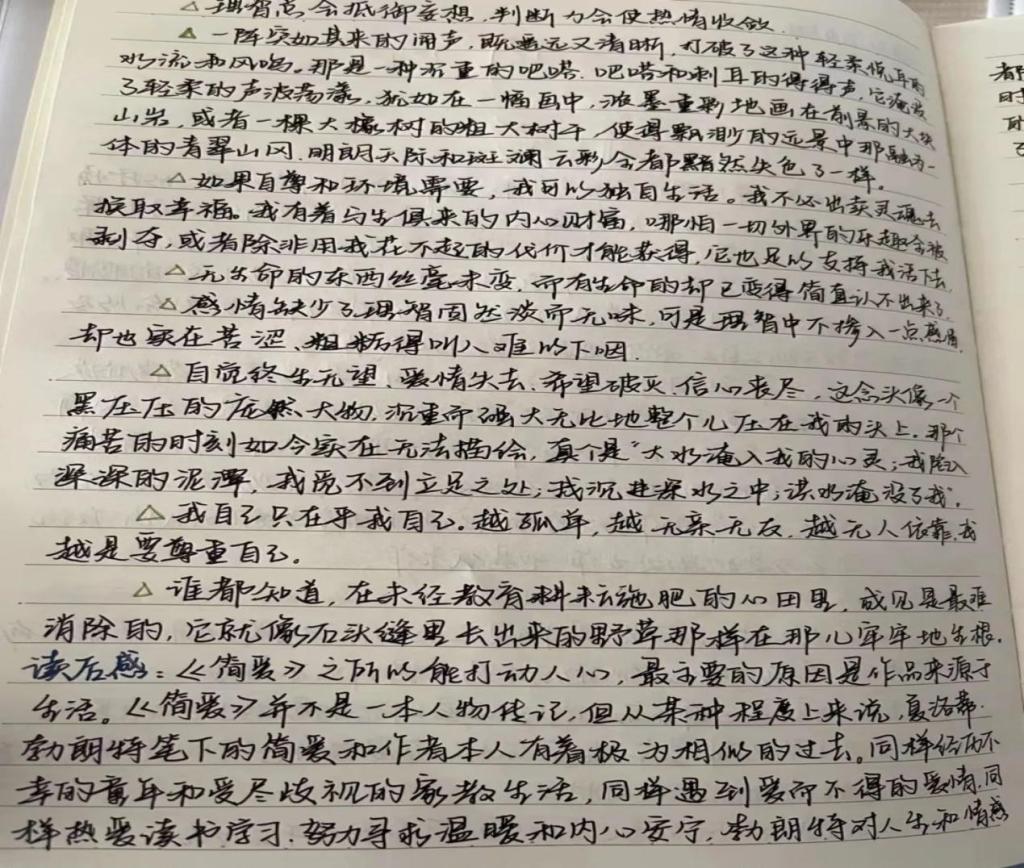 △理智总会抵御妄想,判断力会使热情收敛
△一阵突如其来的闹声,既遥远又清晰,打破了这种轻柔悦耳的
水流和风鸣。那是一种沉重的吧嗒,吧嗒和刺耳的得得声,它淹没
了轻柔的声波荡漾,犹如在一幅画中,浓墨重彩地画在前景的大块
山岩,或者一棵大橡树的粗大树干,使得飘渺的远景中那融为一
体的青翠山冈,明朗天际和斑斓云彩全都黯然失色了一样。
△如果自尊和环境需要,我可以独自生活。我不必出卖灵魂去
换取幸福。我有着与生俱来的内心财富,哪怕一切外界的乐趣全被
剥夺,或者除非用我花不起的代价才能获得,它也足以支持我活下去。
△无生命的东西丝毫未变,而有生命的却已变得简直认不出来了。
△感情缺少了理智固然淡而无味,可是理智中不掺入一点感情
却也实在苦涩、粗粝得叫人难以下咽.
△自觉终生无望,爱情失去,希望破灭,信心丧尽,这念头像一个
黑压压的庞然大物,沉重而强大无比地整个儿压在我的头上.那个
痛苦的时刻如今实在无法描绘,真个是“大水淹入我的心灵;我陷入
深深的泥潭,我觅不到立足之处;我沉进深水之中;洪水淹没了我”.
△我自己只在乎我自己。越孤单,越无亲无友,越无人依靠,我
越是要尊重自己。
△谁都知道,在未经教育耕耘施肥的心田里,成见是最难
消除的,它就像石头缝里长出来的野草那样在那儿牢牢地生根.
读后感:《简爱》之所以能打动人心,最主要的原因是作品来源于
生活。《简爱》并不是一本人物传记,但从某种程度上来说,夏洛蒂·
勃朗特笔下的简爱和作者本人有着极为相似的过去。同样经历不
幸的童年和受尽歧视的家教生活,同样遇到爱而不得的爱情,同
样热爱读书学习.努力寻求温暖和内心安宁.勃朗特对人生和情感
都
时
的